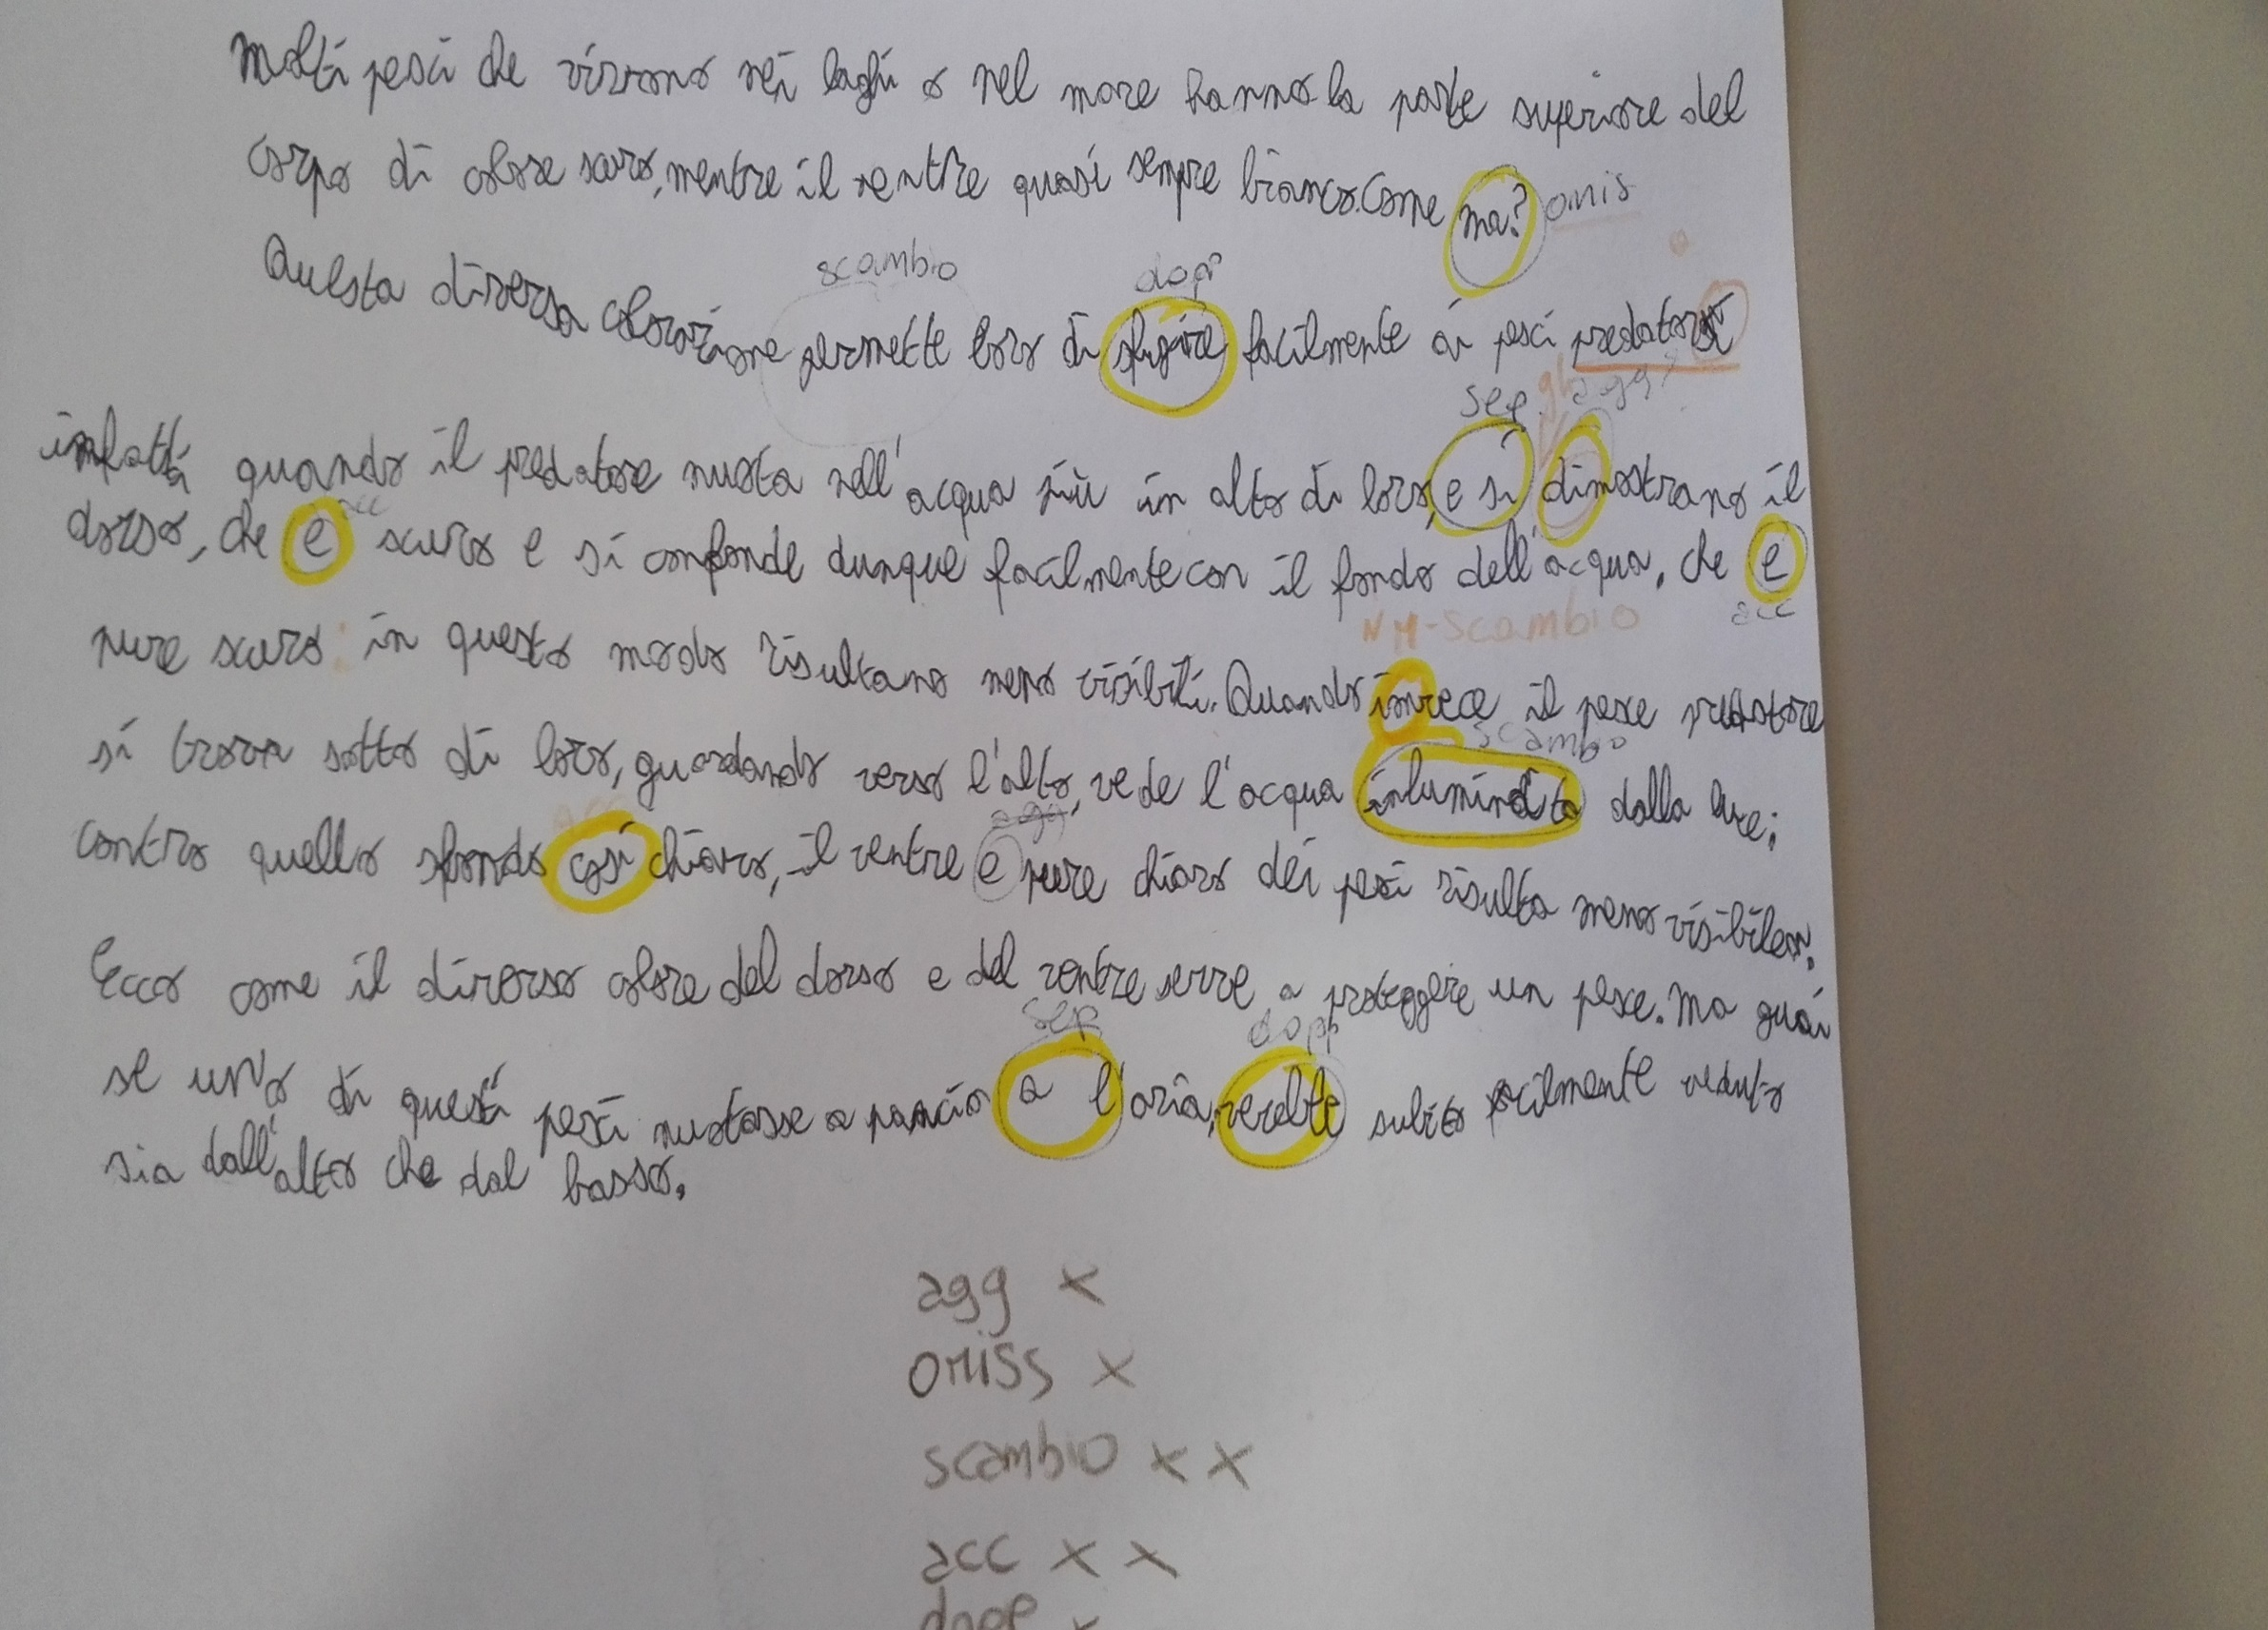 Molti pesci che vivono nei laghi o nel mare hanno la parte superiore del
corpo di colore scuro, mentre il ventre quasi sempre bianco. Come ma? omis
scambio dopp
Questa diversa colorazione permette loro di sfugire facilmente ai pesci predatori
sep gli agg
imfatti quando il predatore nuota nell'acqua più in alto di loro, e si dimostrano il
dorso, che e acc scuro e si confonde dunque facilmente con il fondo dell'acqua, che e
NM-scambio acc
pure scuro: in questo modo risultano meno visibili. Quando imvece il pesce predatore
scambio
si trova sotto di loro, guardando verso l'alto, vede l'acqua inluminata dalla luce;
acc agg
contro quello sfondo cosi chiaro, il ventre e pure chiaro dei pesci risulta meno visibile.
Ecco come il diverso colore del dorso e del ventre serve a proteggere un pesce. Ma guai
sep dopp
se uno di questi pesci nuotasse a pancia a l'aria, verebbe subito facilmente veduto
sia dall'alto che dal basso.
agg x
omiss x
scambio x x
acc x x
dopp x